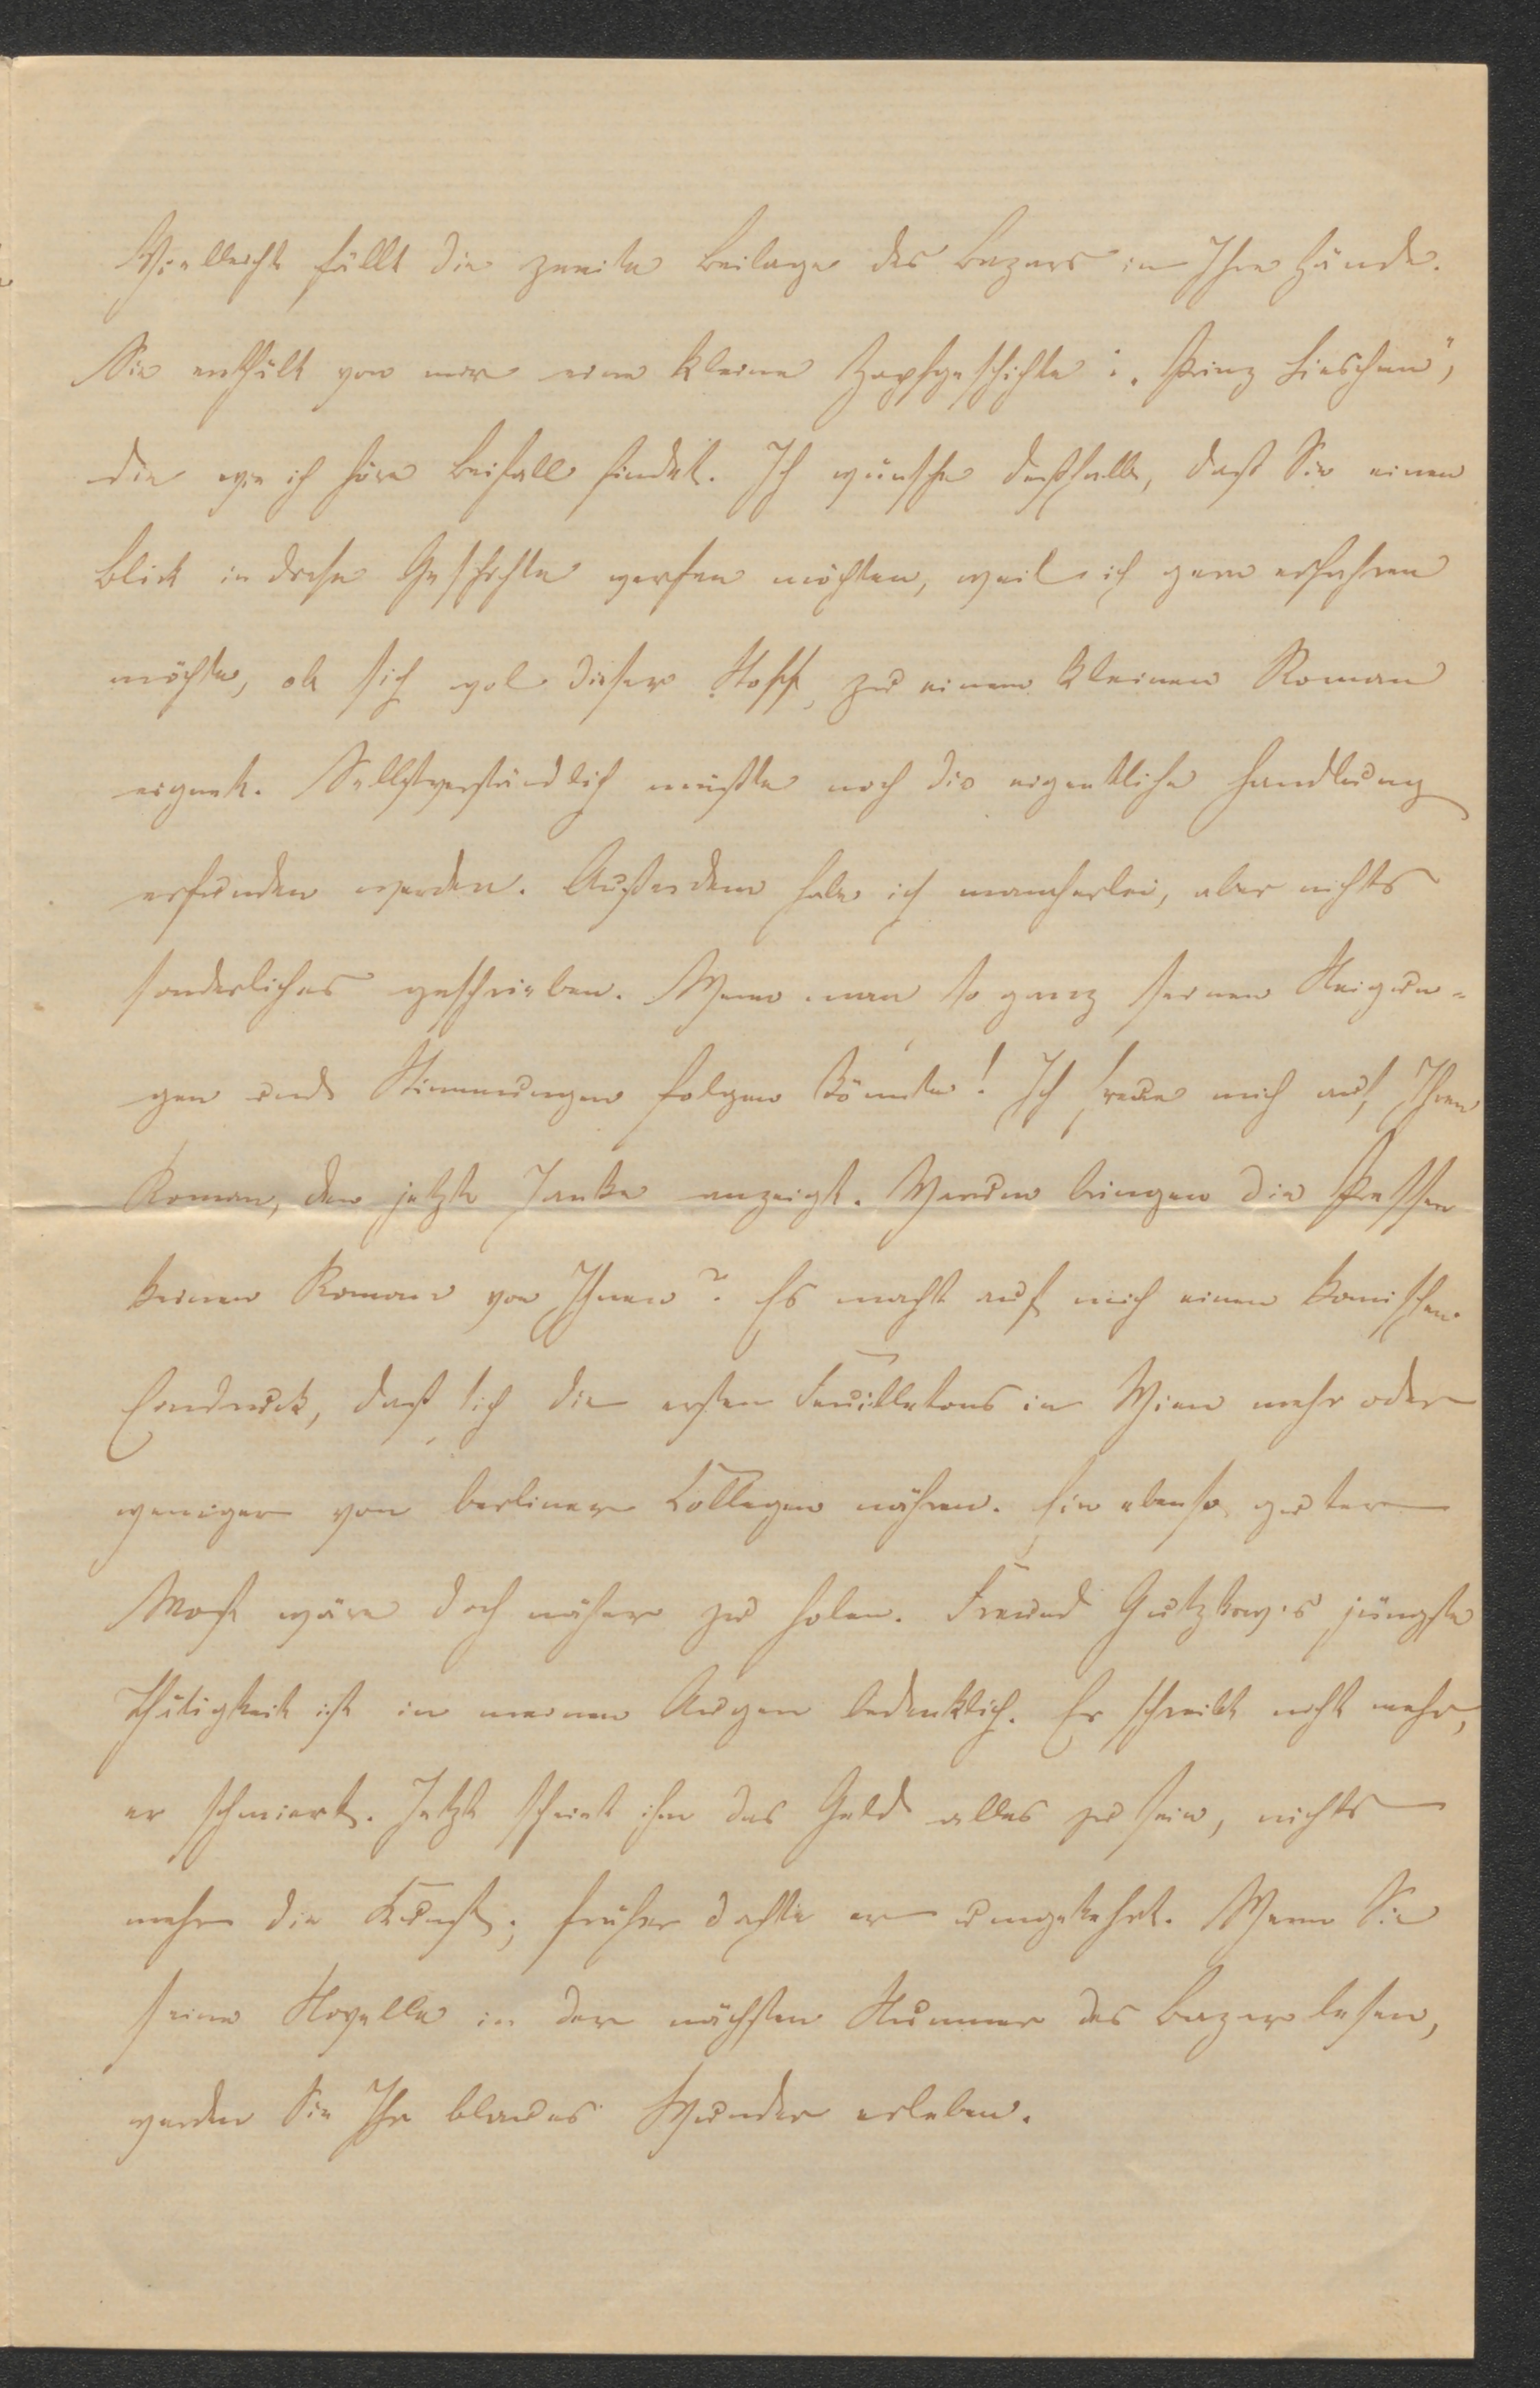 Vielleicht fällt die zweite Beilage des Bazars in Ihre Hände.
Sie enthält von mir eine kleine Zopfgeschichte: „Prinz Lieschen",
die wie ich höre Beifall findet. Ich wünschte deßhalb, daß Sie einen
Blick in diese Geschichte werfen möchten, weil ich gern erfahren
möchte, ob sich wol dieser Stoff, zu einem kleinen Roman
eignet. Selbstverständlich müßte noch die eigentliche Handlung
erfunden werden. Außerdem habe ich mancherlei, aber nichts
sonderliches geschrieben. Wenn man so ganz seinen Neigun-
gen und Stimmungen folgen könnte! Ich freue mich auf Ihren
Roman, den jetzt Janke anzeigt. Warum bringen die Pressen
keinen Roman von Ihnen? Es macht auf mich einen komischen
Eindruck, daß sich die ersten Feuilletons in Wien mehr oder
weniger von berliner Collegen nähren. Ein ebenso guter
Most wäre doch näher zu holen. Freund Gutzkow's jüngste
Thätigkeit ist in meinen Augen bedenklich. Er schreibt nicht mehr,
er schmiert. Jetzt scheint ihm das Geld alles zu sein, nichts
mehr die Kunst; früher dachte er umgekehrt. Wenn Sie
seine Novelle in der nächsten Nummer des Bazar lesen,
werden Sie Ihr blaues Wunder erleben.